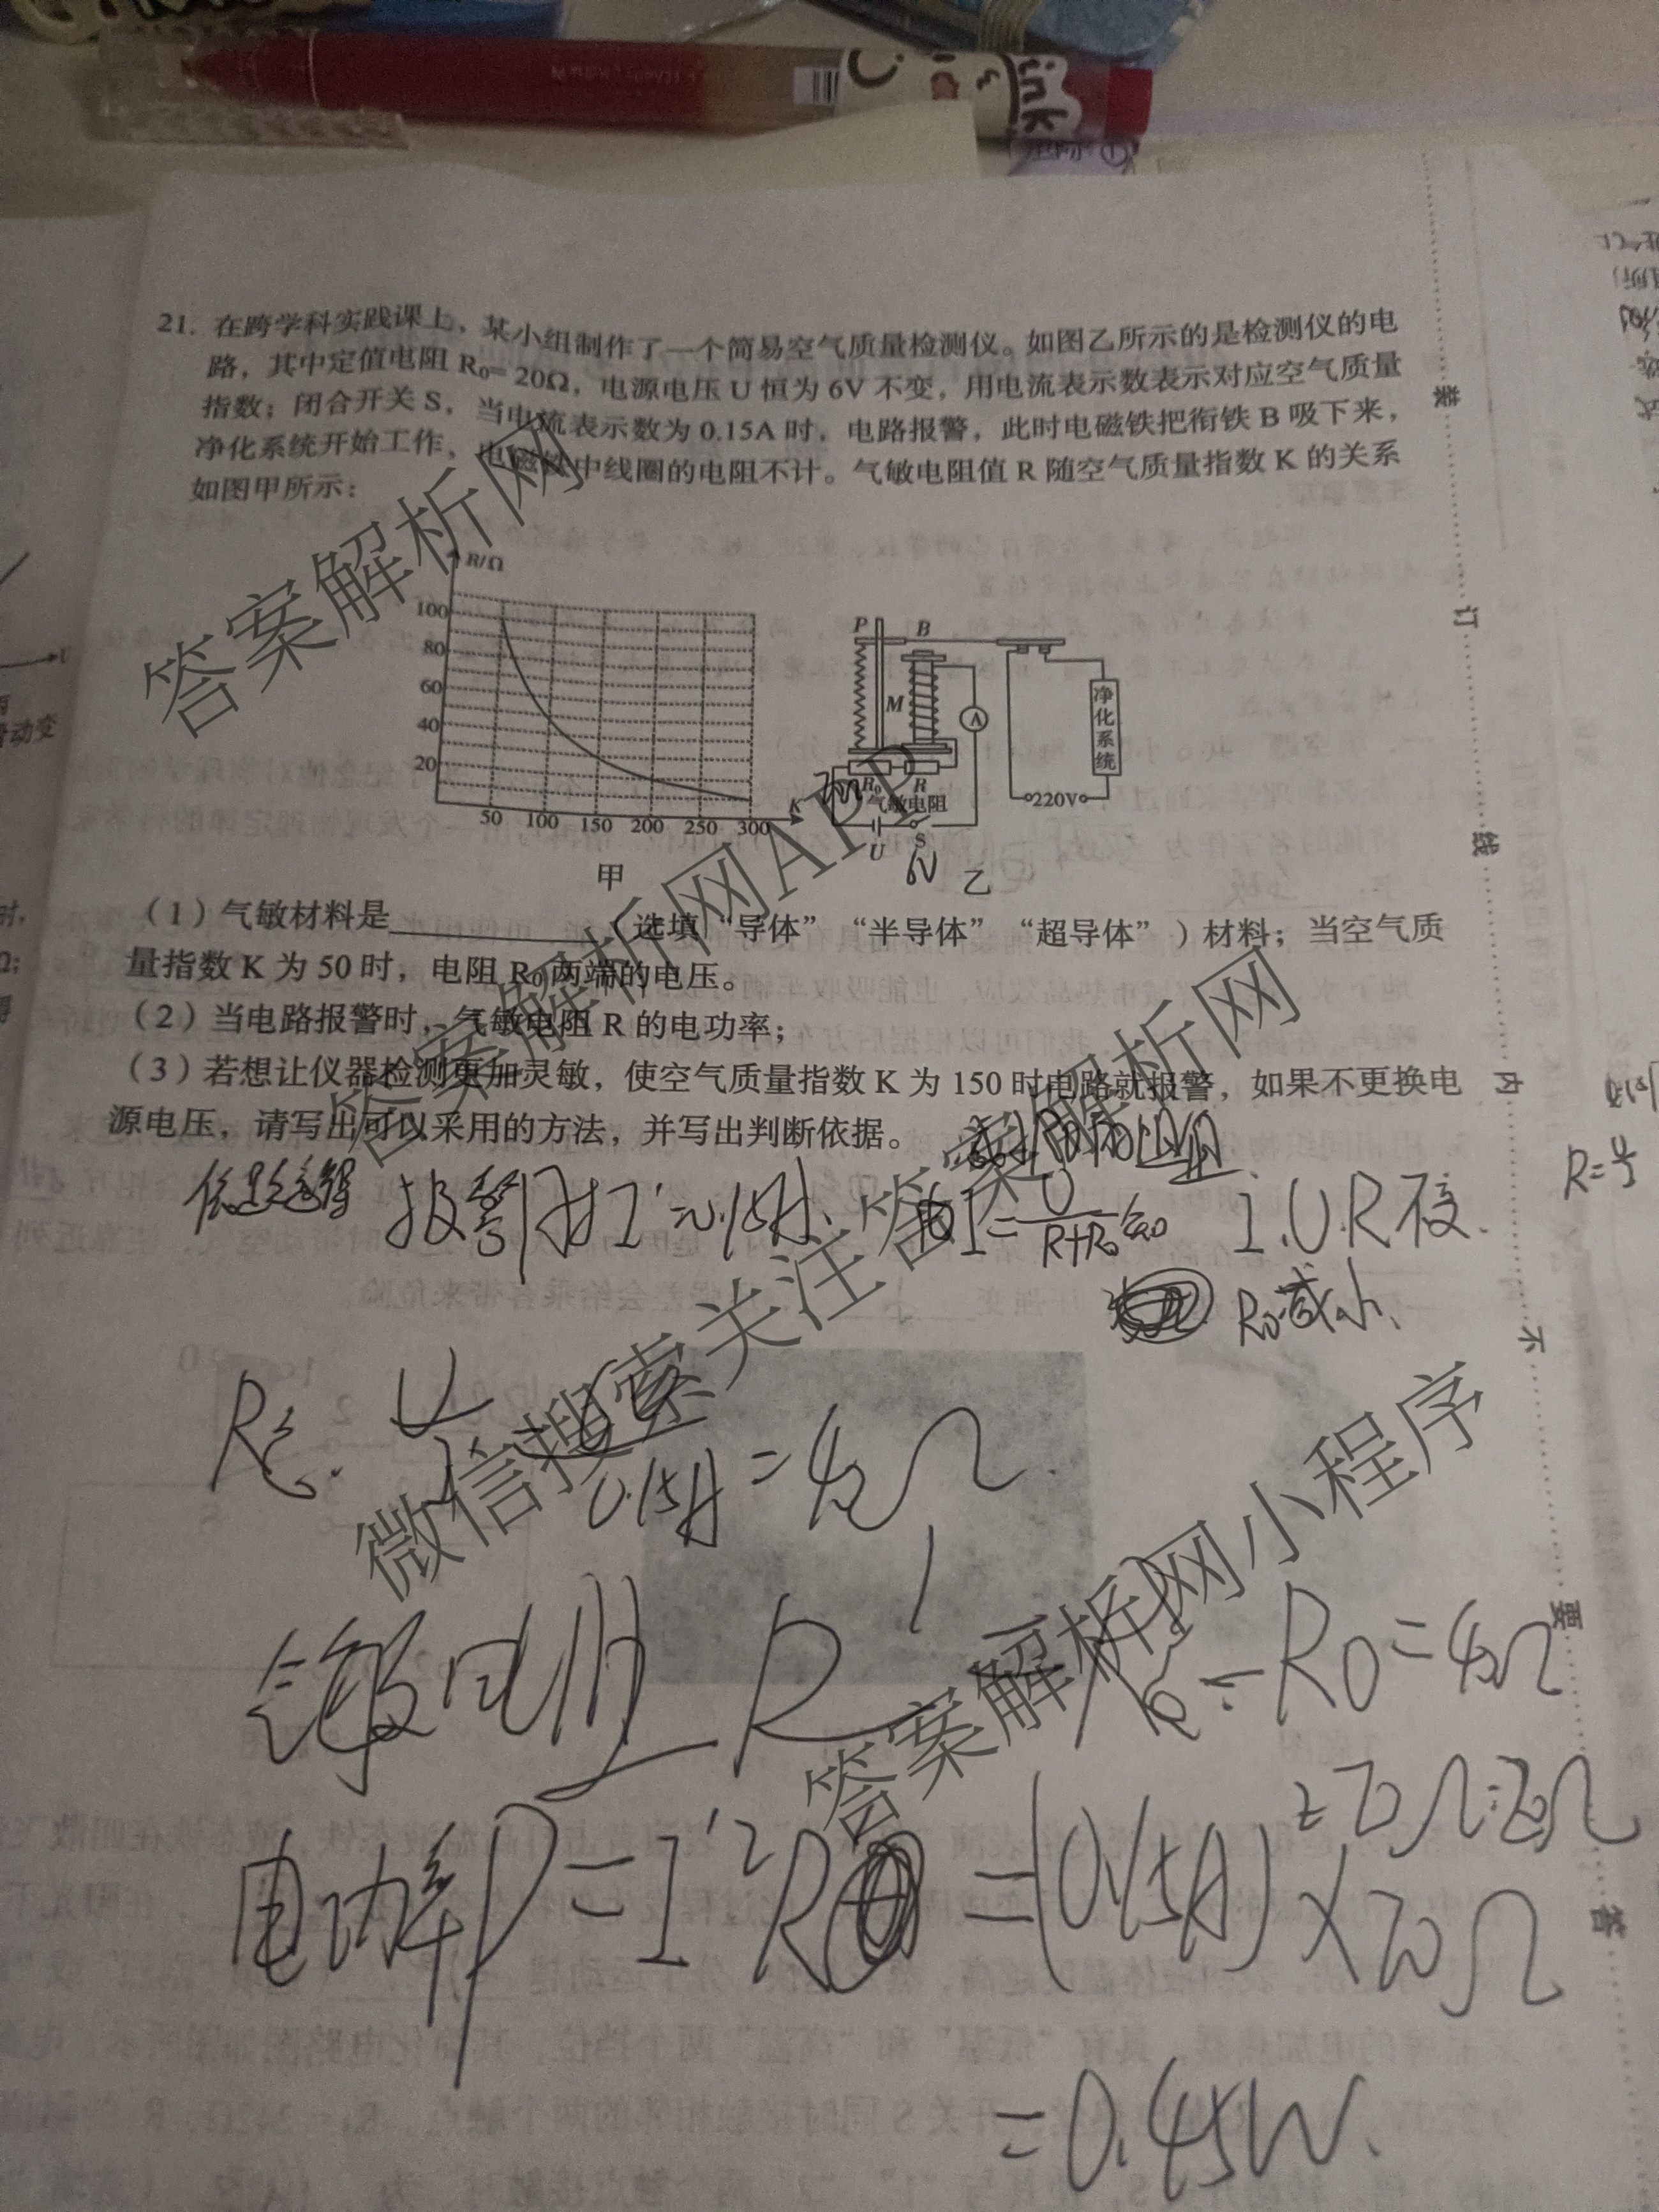 ink
21. 在跨学科实践课上，某小组制作了一个简易空气质量检测仪。如图乙所示的是检测仪的电
路，其中定值电阻 R₀=20Ω，电源电压 U 恒为 6V 不变，用电流表示数表示对应空气质量
指数；闭合开关 S，当电流表示数为 0.15A 时，电路报警，此时电磁铁把衔铁 B 吸下来，
净化系统开始工作，电磁铁中线圈的电阻不计。气敏电阻值 R 随空气质量指数 K 的关系
如图甲所示：
R/Ω
100
80
60
40
20
50 100 150 200 250 300 K
甲
P B
M
A
净化系统
R₀ R
气敏电阻
U S
220V
6V
乙
（1）气敏材料是____________（选填“导体” “半导体” “超导体”）材料；当空气质
量指数 K 为 50 时，电阻 R₀ 两端的电压。
（2）当电路报警时，气敏电阻 R 的电功率；
（3）若想让仪器检测更加灵敏，使空气质量指数 K 为 150 时电路就报警，如果不更换电
源电压，请写出可以采用的方法，并写出判断依据。
报警时 I'=0.15A、 由 I=U/(R+R₀) 知 I.U.R不变.
R₀减小.
0.15A =40Ω.
气敏电阻 R' -R₀=40Ω
-20Ω=20Ω
电功率P=I'²R =(0.15A)²×20Ω
=0.45W.
装
订
线
内
不
要
答
答案解析网
答案解析网APP
微信搜索关注 答案解析网
答案解析网小程序